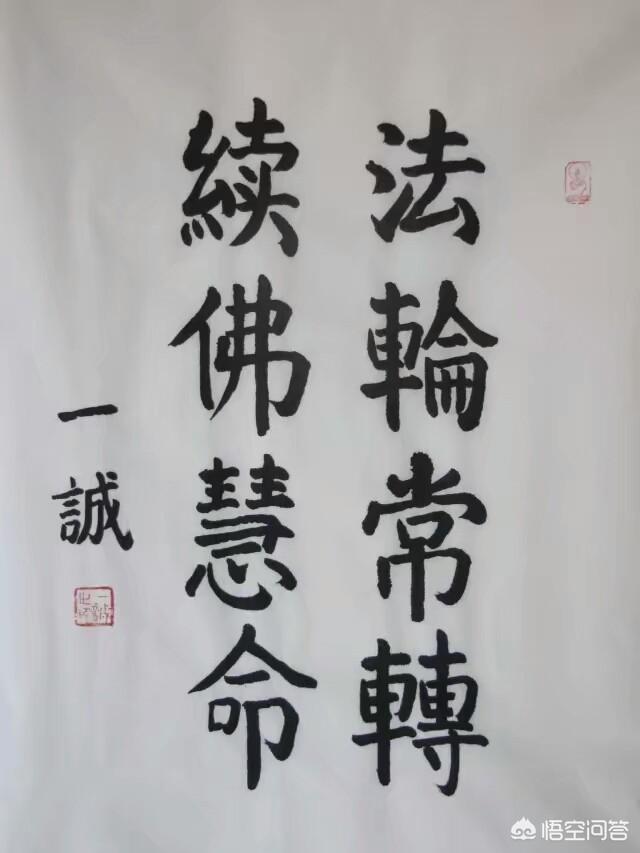 法輪常轉
續佛慧命
一誠
悟空问答